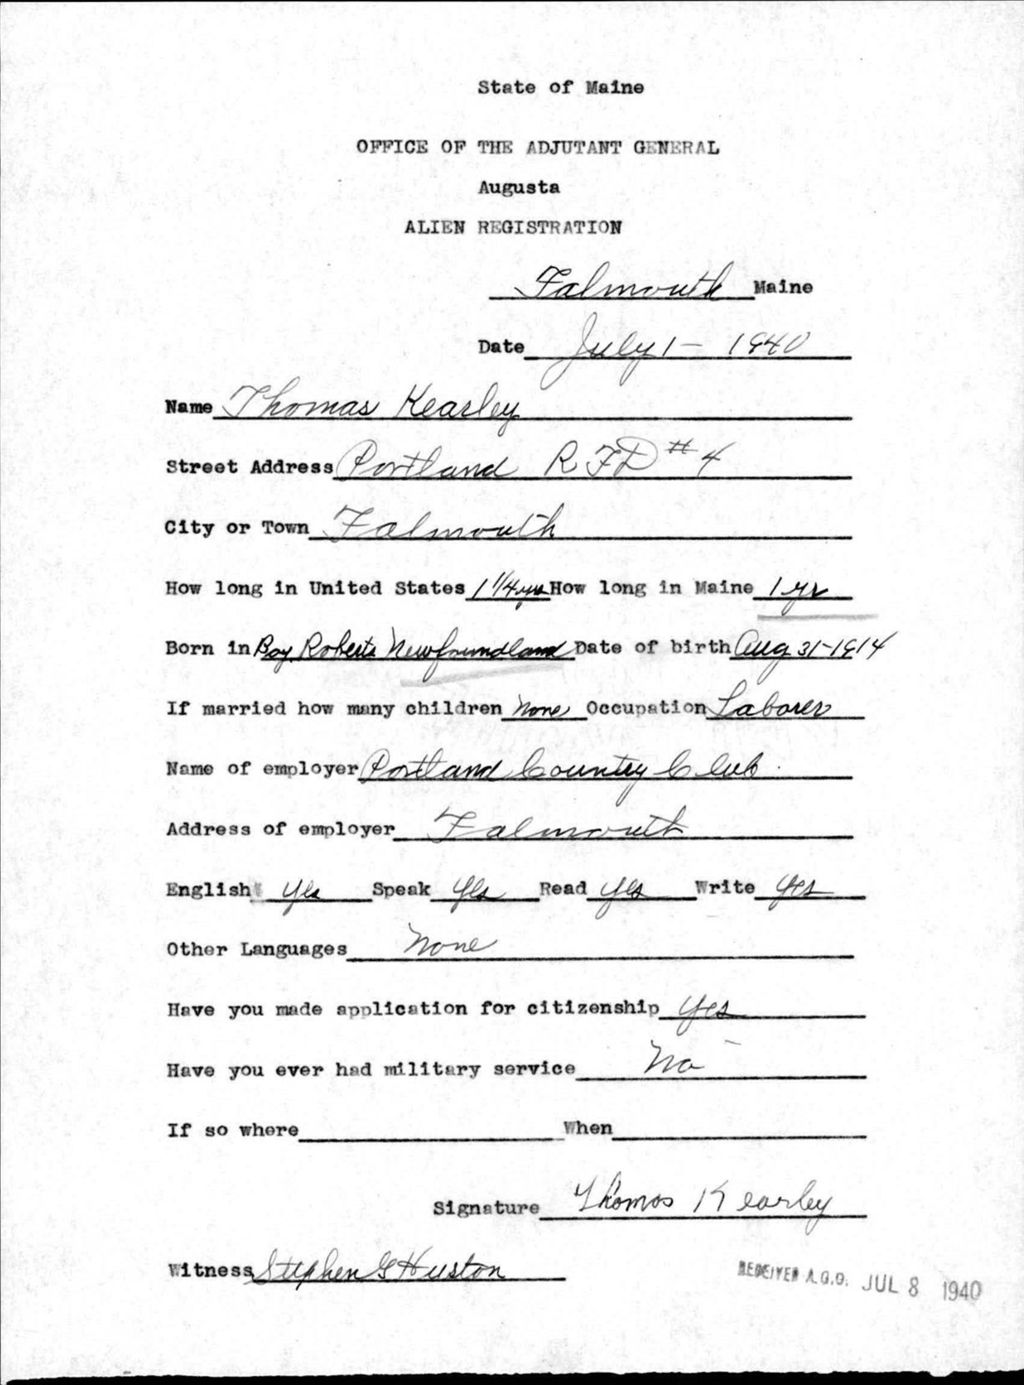 State of Maine
OFFICE OF THE ADJUTANT GENERAL
Augusta
ALIEN REGISTRATION
Falmouth Maine
Date July 1 - 1940
Name Thomas Kearley
Street Address Portland RFD #4
City or Town Falmouth
How long in United States 1 1/4 yrs How long in Maine 1 yr
Born in Bay Roberts Newfoundland Date of birth Aug 31-1914
If married how many children None Occupation Laborer
Name of employer Portland Country Club.
Address of employer Falmouth
English Yes Speak Yes Read Yes Write Yes
Other Languages None
Have you made application for citizenship Yes
Have you ever had military service No
If so where When
Signature Thomas Kearley
Witness Stephen G Huston
RECEIVED A.G.O. JUL 8 1940